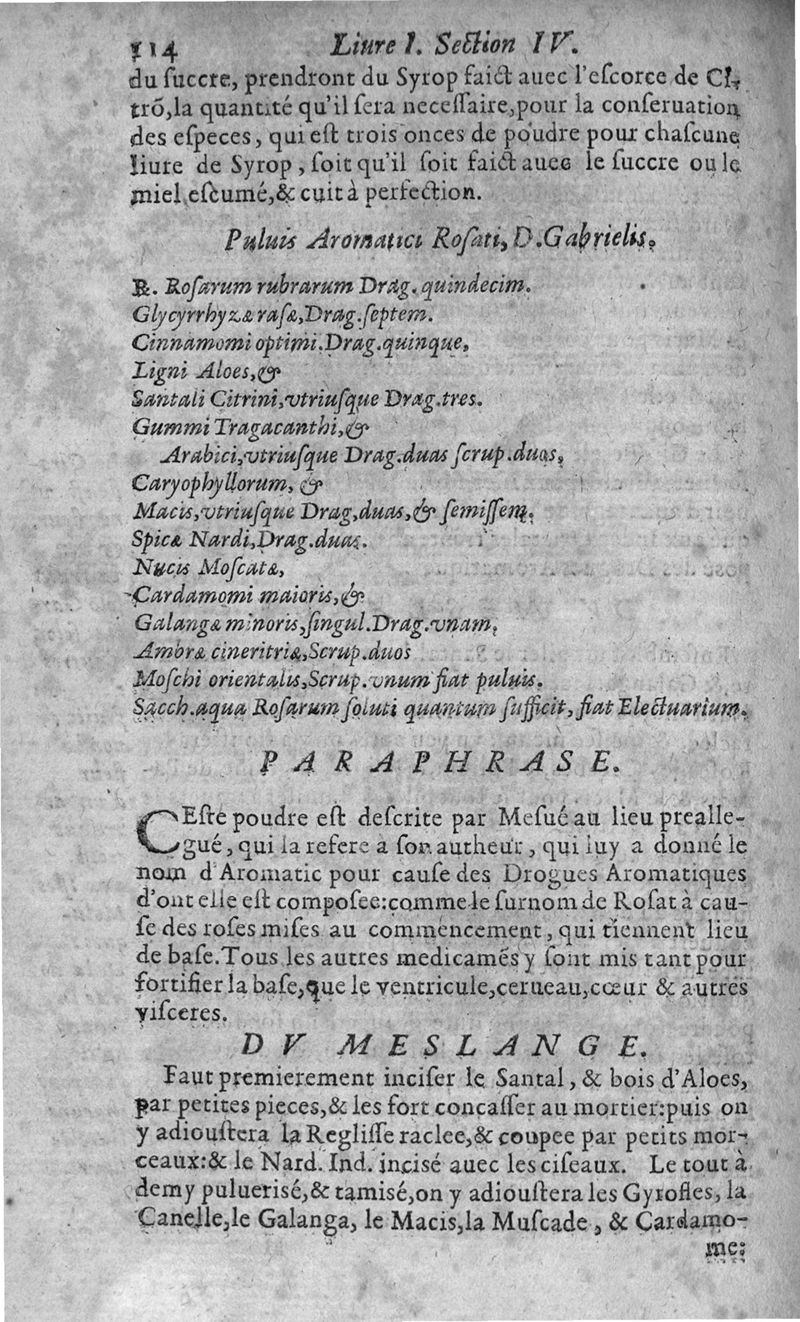 514 Liure I. Section IV.
du succre, prendront du Syrop faict auec l'escorce de Ci-
trõ, la quantité qu'il sera necessaire, pour la conseruation
des especes, qui est trois onces de poudre pour chascune
liure de Syrop, soit qu'il soit faict auec le succre ou le
miel escumé, & cuit à perfection.
Puluis Aromatici Rosati, D. Gabrielis.
℞. Rosarum rubrarum Drag. quindecim.
Glycyrrhyzæ rasæ, Drag. septem.
Cinnamomi optimi. Drag. quinque,
Ligni Aloes, &
Santali Citrini, vtriusque Drag. tres.
Gummi Tragacanthi, &
Arabici, vtriusque Drag. duas scrup. duos,
Caryophyllorum, &
Macis, vtriusque Drag, duas, & semissem.
Spicæ Nardi, Drag. duas.
Nucis Moscatæ,
Cardamomi maioris, &
Galangæ minoris, singul. Drag. vnam,
Ambræ cineritiæ, Scrup. duos
Moschi orientalis, Scrup. vnum fiat puluis.
Sacch. aqua Rosarum soluti quantum sufficit, fiat Electuarium.
PARAPHRASE.
CEste poudre est descrite par Mesué au lieu prealle-
gué, qui la refere a son autheur, qui luy a donné le
nom d'Aromatic pour cause des Drogues Aromatiques
d'ont elle est composee: comme le surnom de Rosat à cau-
se des roses mises au commencement, qui tiennent lieu
de base. Tous les autres medicamẽs y sont mis tant pour
fortifier la base, que le ventricule, cerueau, cœur & autres
visceres.
DV MESLANGE.
Faut premierement inciser le Santal, & bois d'Aloes,
par petites pieces, & les fort concasser au mortier: puis on
y adioustera la Reglisse raclee, & coupee par petits mor-
ceaux: & le Nard. Ind. incisé auec les ciseaux. Le tout à
demy puluerisé, & tamisé, on y adioustera les Gyrofles, la
Canelle, le Galanga, le Macis, la Muscade, & Cardamo-
me: